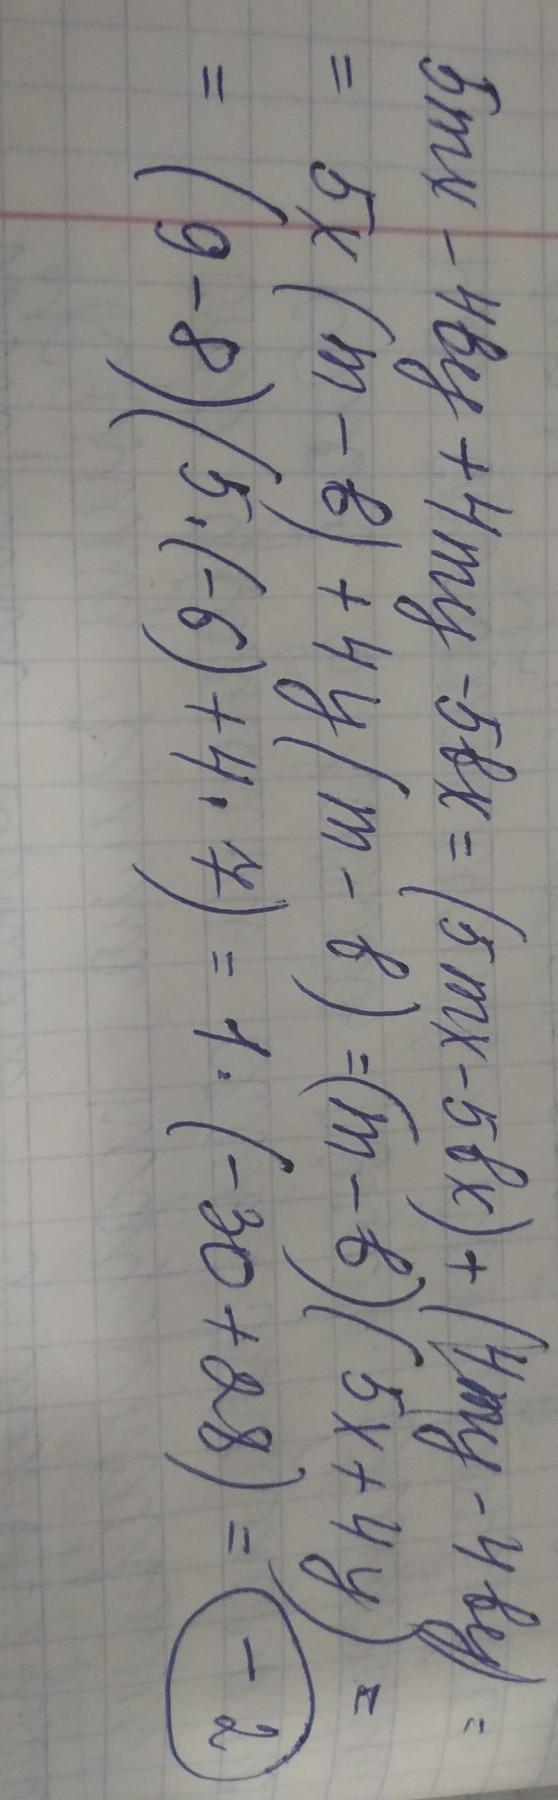 5mx - 4вy + 4my - 5вx = (5mx - 5вx) + (4my - 4вy) =
= 5x (m - в) + 4y (m - в) = (m - в)(5x + 4y) =
= (9 - 8)(5 · (-6) + 4 · 7) = 1 · (-30 + 28) = -2